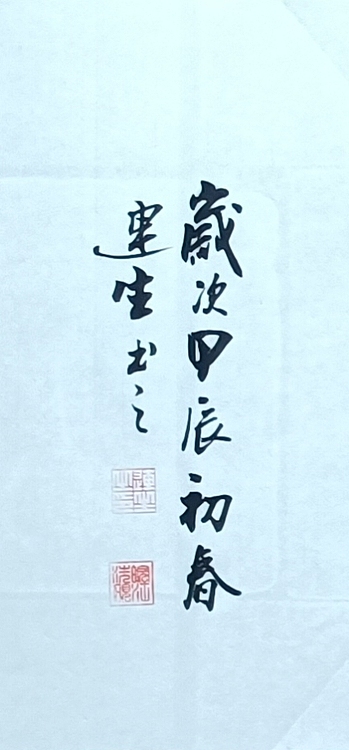 歲次甲辰初春
連生书之